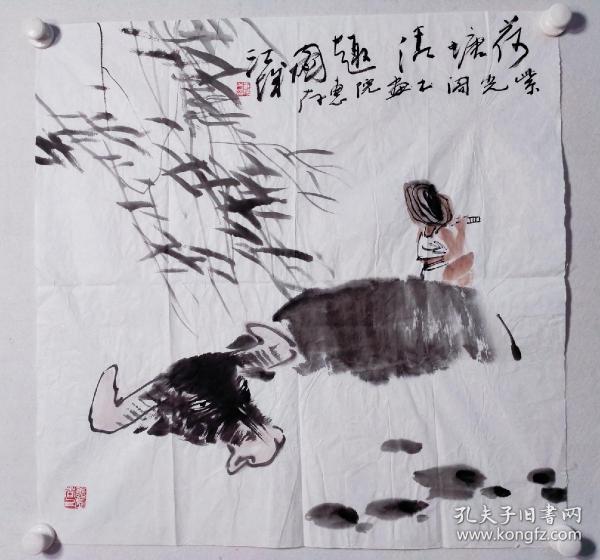 荷塘清趣图
紫光阁书画院惠存
孔夫子旧书网
WWW.KONGFZ.COM